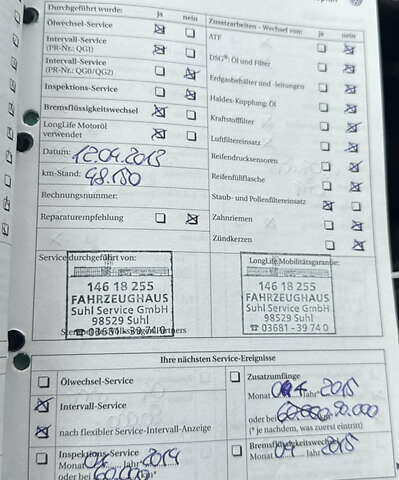 Durchgeführt wurde:
ja nein
Ölwechsel-Service
Intervall-Service
(PR-Nr.: QG1)
Intervall-Service
(PR-Nr.: QG0/QG2)
Inspektions-Service
Bremsflüssigkeitswechsel
LongLife Motoröl
verwendet
Datum: 12.04.2013
km-Stand: 48.150
Rechnungsnummer:
Reparaturempfehlung
Zusatzarbeiten - Wechsel von:
ja nein
ATF
DSG®: Öl und Filter
Erdgasbehälter und -leitungen
Haldex-Kupplung: Öl
Kraftstofffilter
Luftfiltereinsatz
Reifendrucksensoren
Reifenfüllflasche
Staub- und Pollenfiltereinsatz
Zahnriemen
Zündkerzen
Service durchgeführt von:
146 18 255
FAHRZEUGHAUS
Suhl Service GmbH
98529 Suhl
☎ 03681 - 39 74 0
LongLife Mobilitätsgarantie:
146 18 255
FAHRZEUGHAUS
Suhl Service GmbH
98529 Suhl
☎ 03681 - 39 74 0
Ihre nächsten Service-Ereignisse
Ölwechsel-Service
Intervall-Service
nach flexibler Service-Intervall-Anzeige
Inspektions-Service
Monat 04 Jahr 2014
oder bei 60.000 km*
Zusatzumfänge
Monat 04 Jahr 2015
oder bei 90.000
(* je nachdem, was zuerst eintritt)
Bremsflüssigkeitswechsel
Monat 04 2015